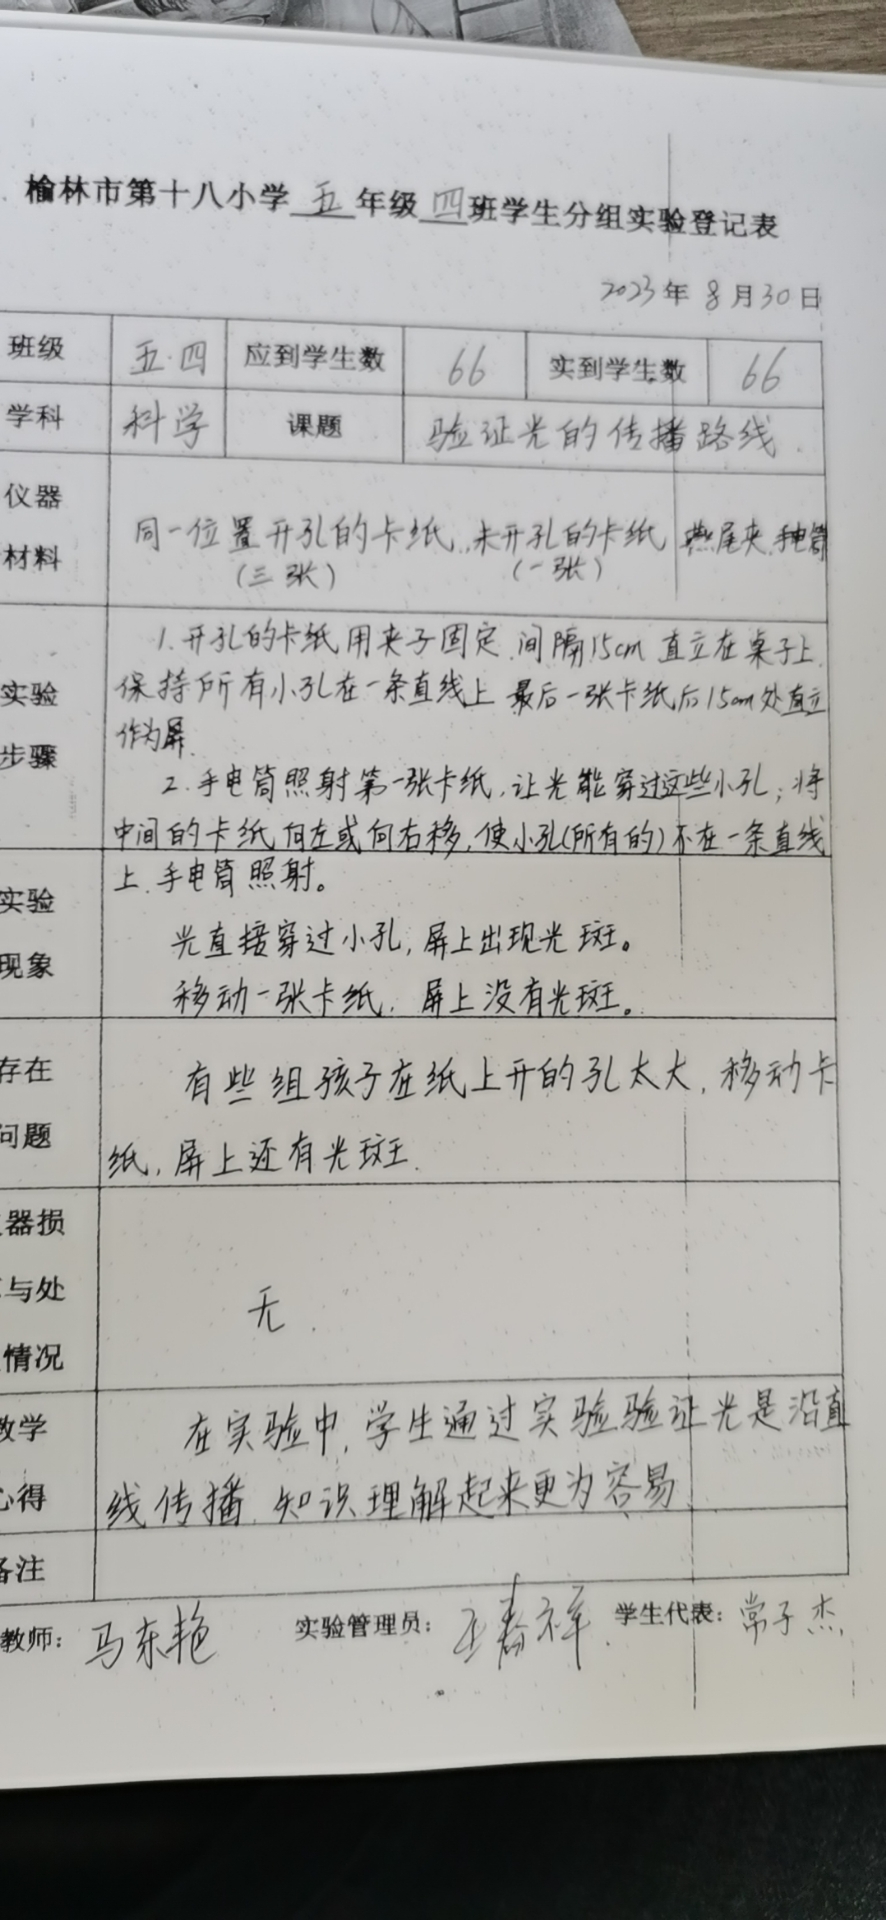 榆林市第十八小学 五 年级 四 班学生分组实验登记表
2023年 8 月 30 日
班级 五.四 应到学生数 66 实到学生数 66
学科 科学 课题 验证光的传播路线.
仪器
材料
同一位置开孔的卡纸, 未开孔的卡纸 燕尾夹, 手电筒
(三张) (一张)
实验
步骤
1. 开孔的卡纸用夹子固定, 间隔15cm 直立在桌子上,
保持所有小孔在一条直线上 最后一张卡纸后15cm处直立
作为屏.
2. 手电筒照射第一张卡纸, 让光能穿过这些小孔; 将
中间的卡纸向左或向右移, 使小孔(所有的)不在一条直线
上, 手电筒照射。
实验
现象
光直接穿过小孔, 屏上出现光斑。
移动一张卡纸, 屏上没有光斑。
存在
问题
有些组孩子在纸上开的孔太大, 移动卡
纸, 屏上还有光斑.
器损
与处
情况
无.
教学
心得
在实验中, 学生通过实验验证光是沿直
线传播, 知识理解起来更为容易.
备注
教师: 马东艳 实验管理员: 王春祥 学生代表: 常子杰